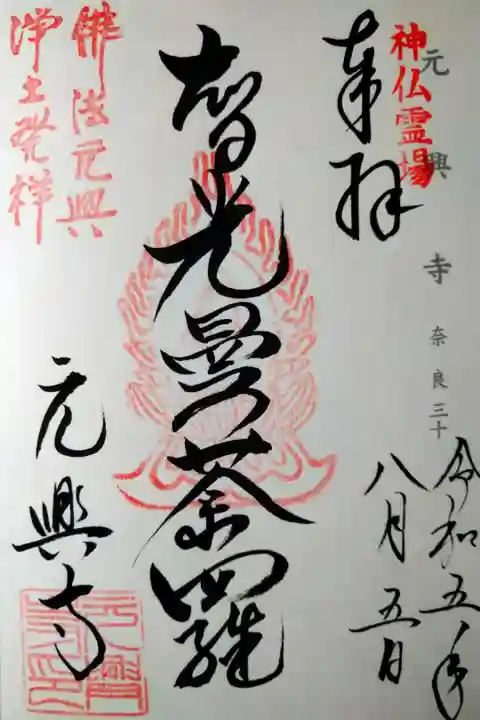 神仏霊場
元興寺 奈良三十
奉拝
令和五年
八月五日
智光曼荼羅
元興寺
佛法元興
浄土発祥